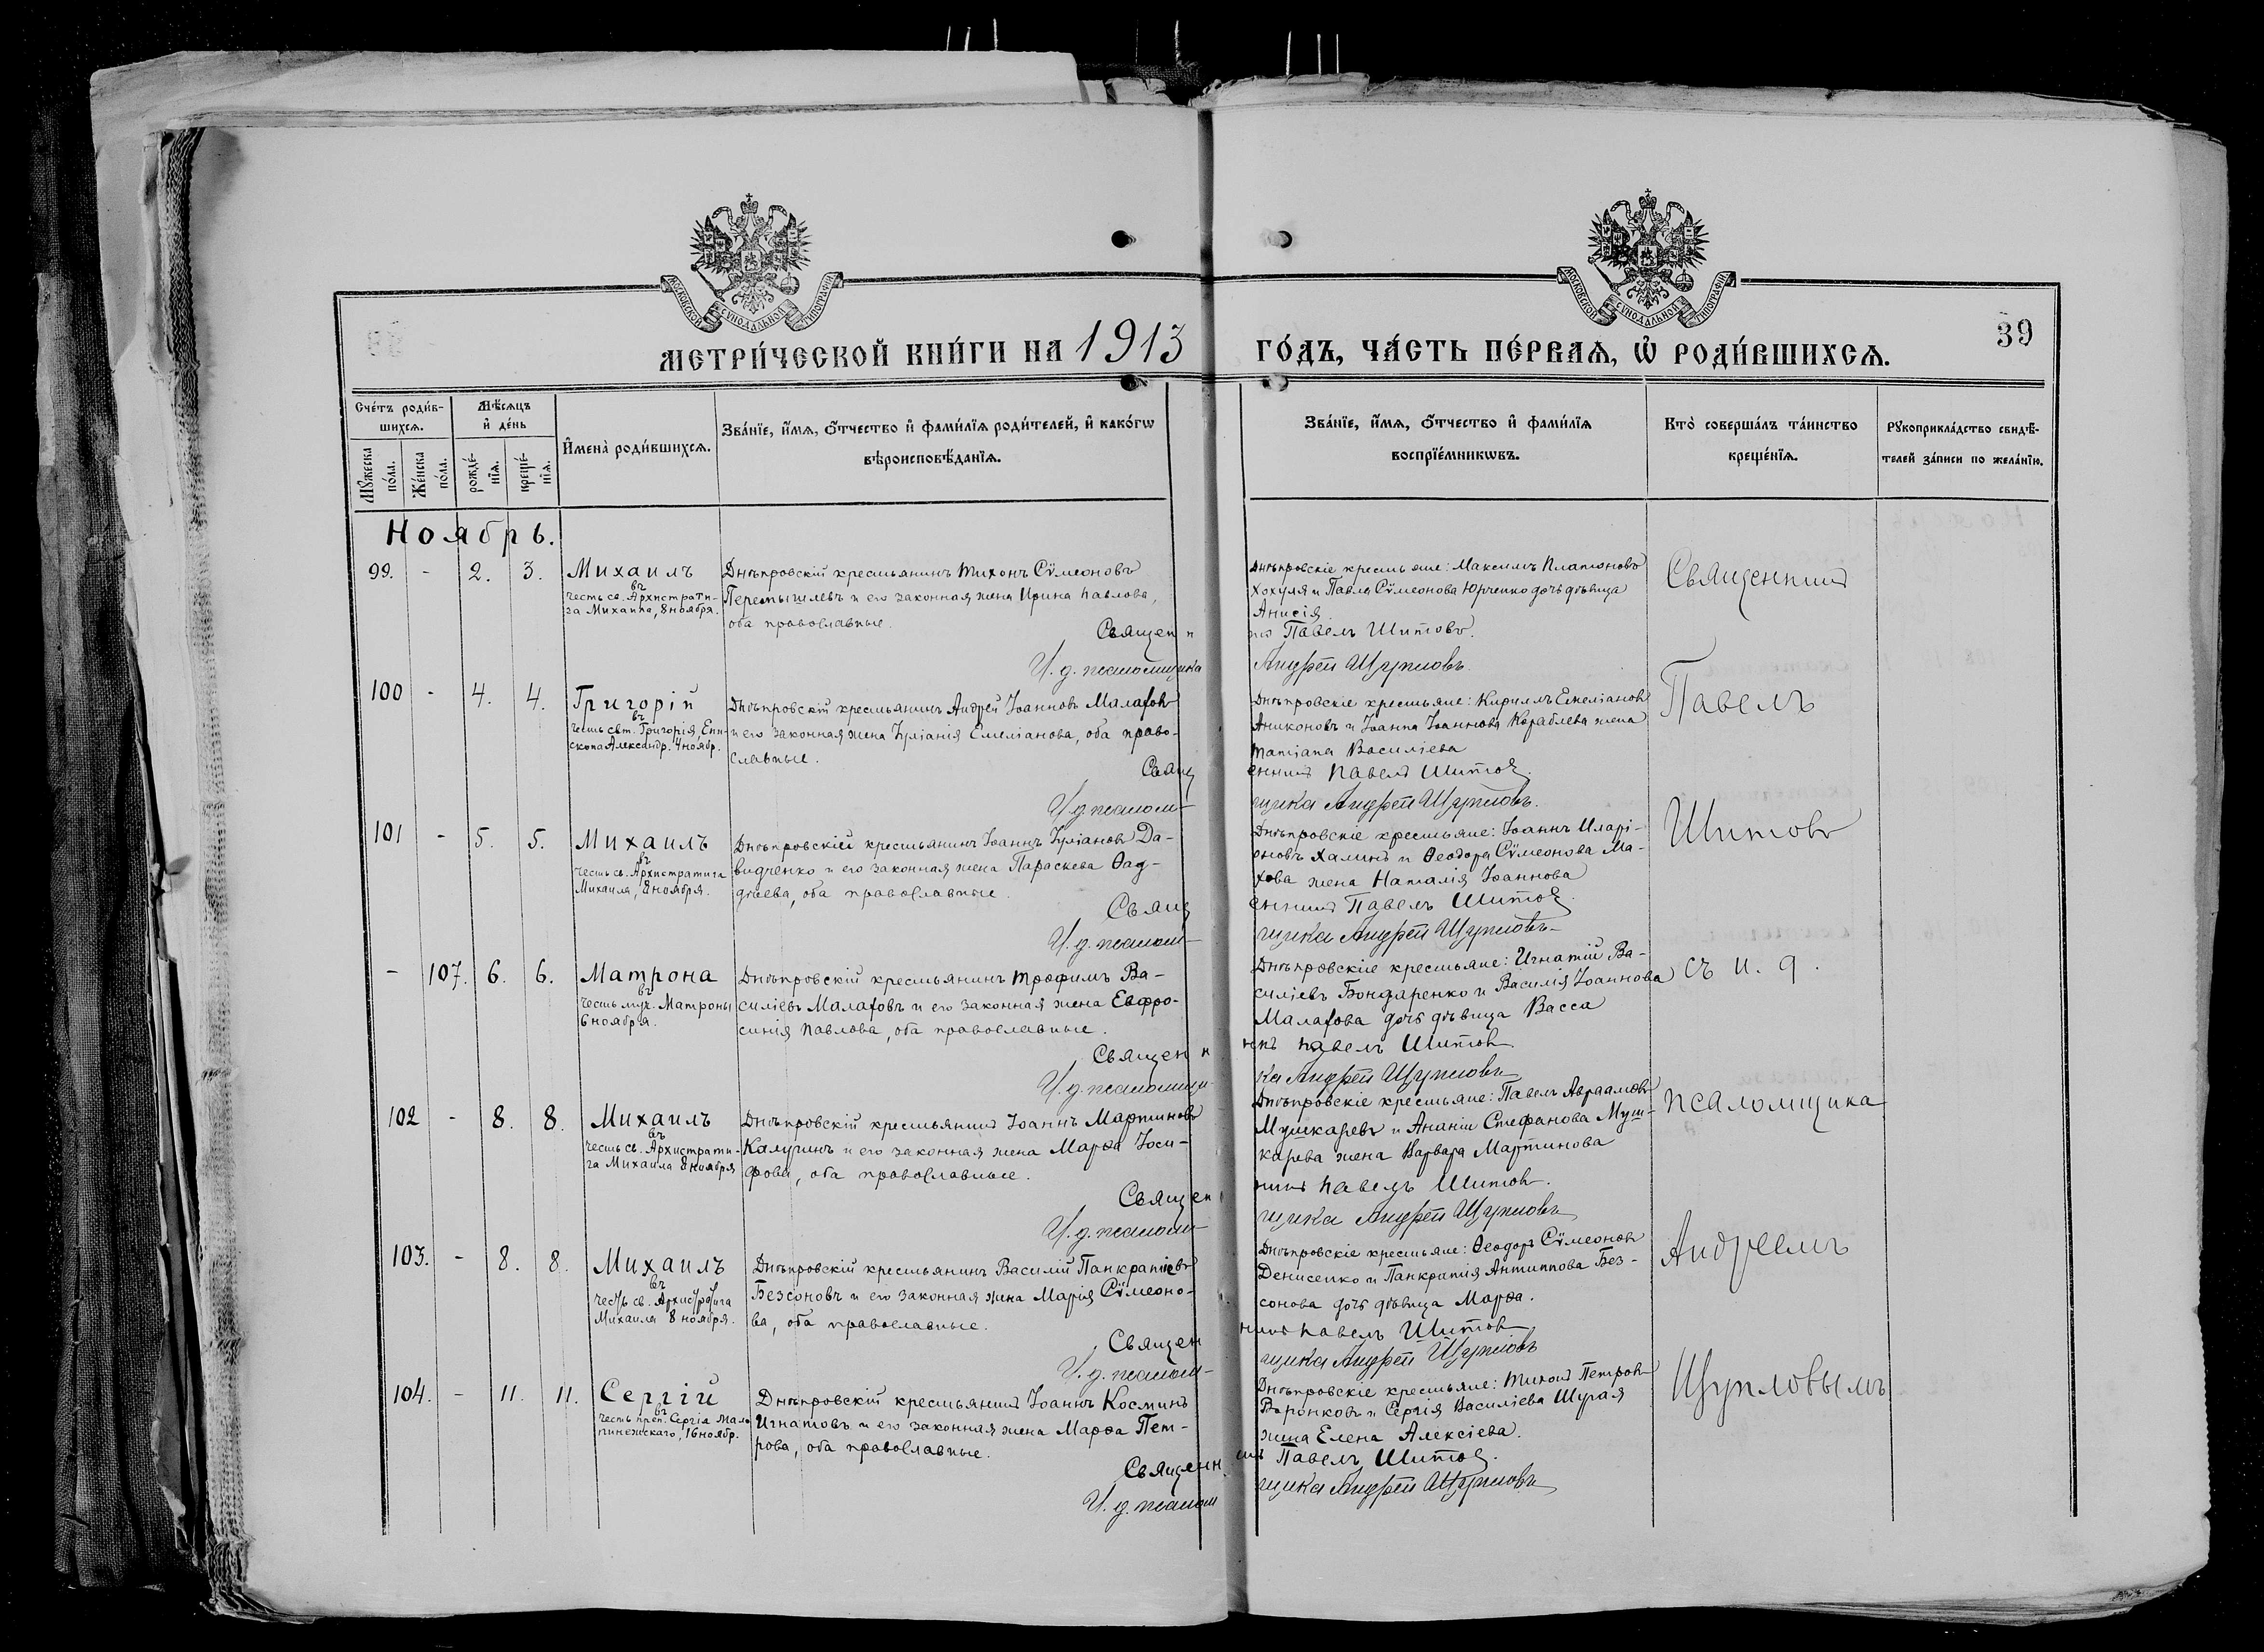 МОСКОВСКОЙ СУНОДАЛЬНОЙ ТИПОГРАФІИ
МОСКОВСКОЙ СУНОДАЛЬНОЙ ТИПОГРАФІИ
39
МЕТРИ́ЧЕСКОЙ КНИ́ГИ НА 1913 ГО́ДЪ, ЧА́СТЬ ПЕ́РВАѦ, Ѡ҆ РОДИ́ВШИХСѦ.
Сче́тъ роди́в-
шихсѧ.
Мꙋ́жеска по́ла.
Же́нска по́ла.
Мѣ́сѧцъ и҆ де́нь
рожде́-
нїѧ.
креще́-
нїѧ.
И҆мена̀ роди́вшихсѧ.
Зва́нїе, и҆́мѧ, ѻ҆́тчество и҆ фами́лїѧ роди́телей, и҆ како́гѡ
вѣроисповѣ́данїѧ.
Зва́нїе, и҆́мѧ, ѻ҆́тчество и҆ фами́лїѧ
воспрїе́мникѡвъ.
Кто̀ соверша́лъ та́инство
креще́нїѧ.
Рꙋкоприкла́дство свидѣ́-
телей за́писи по жела́нїю.
Ноябрь.
99. - 2. 3. Михаилъ
въ
честь св. Архистрати-
га Михаила, 8 ноября.
Днѣпровскій крестьянинъ Тихонъ Сѵмеоновъ
Перемышлевъ и его законная жена Ирина Павлова,
оба православные.
Днѣпровскіе крестьяне: Максимъ Платоновъ
Хохуля и Павла Сѵмеонова Юрченко дочь дѣвица
Анисія
Священникъ Павелъ Шитовъ.
И. д. псаломщика Андрей Щупловъ.
100 - 4. 4. Григорій
въ
честь свт. Григорія, Епи-
скопа Александр. 4 ноябр.
Днѣпровскій крестьянинъ Андрей Іоанновъ Малаховъ
и его законная жена Іуліанія Емеліанова, оба право-
славные.
Днѣпровскіе крестьяне: Кириллъ Емеліановъ
Аниконовъ и Іоанна Іоаннова Кораблева жена
Татіана Василіева
Священникъ Павелъ Шитовъ.
И. д. псаломщика Андрей Щупловъ.
101 - 5. 5. Михаилъ
въ
честь св. Архистратига
Михаила, 8 ноября.
Днѣпровскій крестьянинъ Іоаннъ Іуліановъ Да-
видченко и его законная жена Параскева Ѳад-
дѣева, оба православные.
Днѣпровскіе крестьяне: Іоаннъ Иларі-
оновъ Халинъ и Ѳеодора Сѵмеонова Ма-
хова жена Наталія Іоаннова
Священникъ Павелъ Шитовъ.
И. д. псаломщика Андрей Щупловъ.
- 107. 6. 6. Матрона
въ
честь муч. Матроны
6 ноября.
Днѣпровскій крестьянинъ Трофимъ Ва-
силіевъ Малаховъ и его законная жена Евфро-
синія Павлова, оба православные.
Днѣпровскіе крестьяне: Игнатій Ва-
силіевъ Бондаренко и Василія Іоаннова
Малахова дочь дѣвица Васса
Священникъ Павелъ Шитовъ
И. д. псаломщика Андрей Щупловъ
102 - 8. 8. Михаилъ
въ
честь св. Архистрати-
га Михаила 8 ноября
Днѣпровскій крестьянинъ Іоаннъ Мартиновъ
Калугинъ и его законная жена Марѳа Іоси-
фова, оба православные.
Днѣпровскіе крестьяне: Павелъ Авраамовъ
Мушкаревъ и Ананіи Стефанова Муш-
карева жена Варвара Мартинова
Священникъ Павелъ Шитовъ.
И. д. псаломщика Андрей Щупловъ
103. - 8. 8. Михаилъ
въ
честь св. Архистратига
Михаила 8 ноября.
Днѣпровскій крестьянинъ Василій Панкратіевъ
Безсоновъ и его законная жена Марія Сѵмеоно-
ва, оба православные.
Днѣпровскіе крестьяне: Ѳеодоръ Сѵмеоновъ
Денисенко и Панкратія Антиппова Без-
сонова дочь дѣвица Марѳа.
Священникъ Павелъ Шитовъ
И. д. псаломщика Андрей Щупловъ
104. - 11. 11. Сергій
въ
честь преп. Сергія Мало
пинежскаго, 16 ноябр.
Днѣпровскій крестьянинъ Іоаннъ Косминъ
Игнатовъ и его законная жена Марѳа Пет-
рова, оба православные.
Днѣпровскіе крестьяне: Тихонъ Петровъ
Воронковъ и Сергія Василіева Шугая
жена Елена Алексіева.
Священникъ Павелъ Шитовъ.
И. д. псаломщика Андрей Щупловъ
Священникъ
Павелъ
Шитовъ
съ и. д.
псаломщика
Андреемъ
Щупловымъ